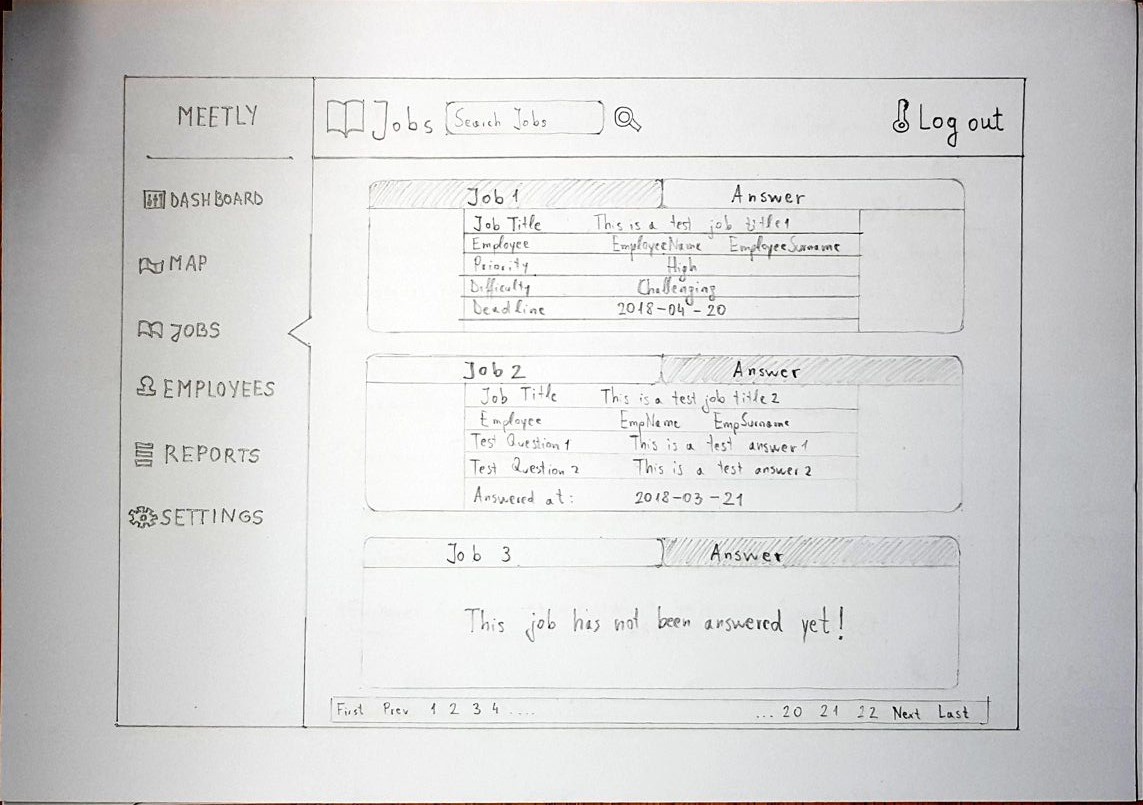 MEETLY
DASHBOARD
MAP
JOBS
EMPLOYEES
REPORTS
SETTINGS
Jobs Search Jobs Log out
Job 1 Answer
Job Title This is a test job title 1
Employee EmployeeName EmployeeSurname
Priority High
Difficulty Challenging
Deadline 2018-04-20
Job 2 Answer
Job Title This is a test job title 2
Employee EmpName EmpSurname
Test Question 1 This is a test answer 1
Test Question 2 This is a test answer 2
Answered at: 2018-03-21
Job 3 Answer
This job has not been answered yet!
First Prev 1 2 3 4 .... ... 20 21 22 Next Last